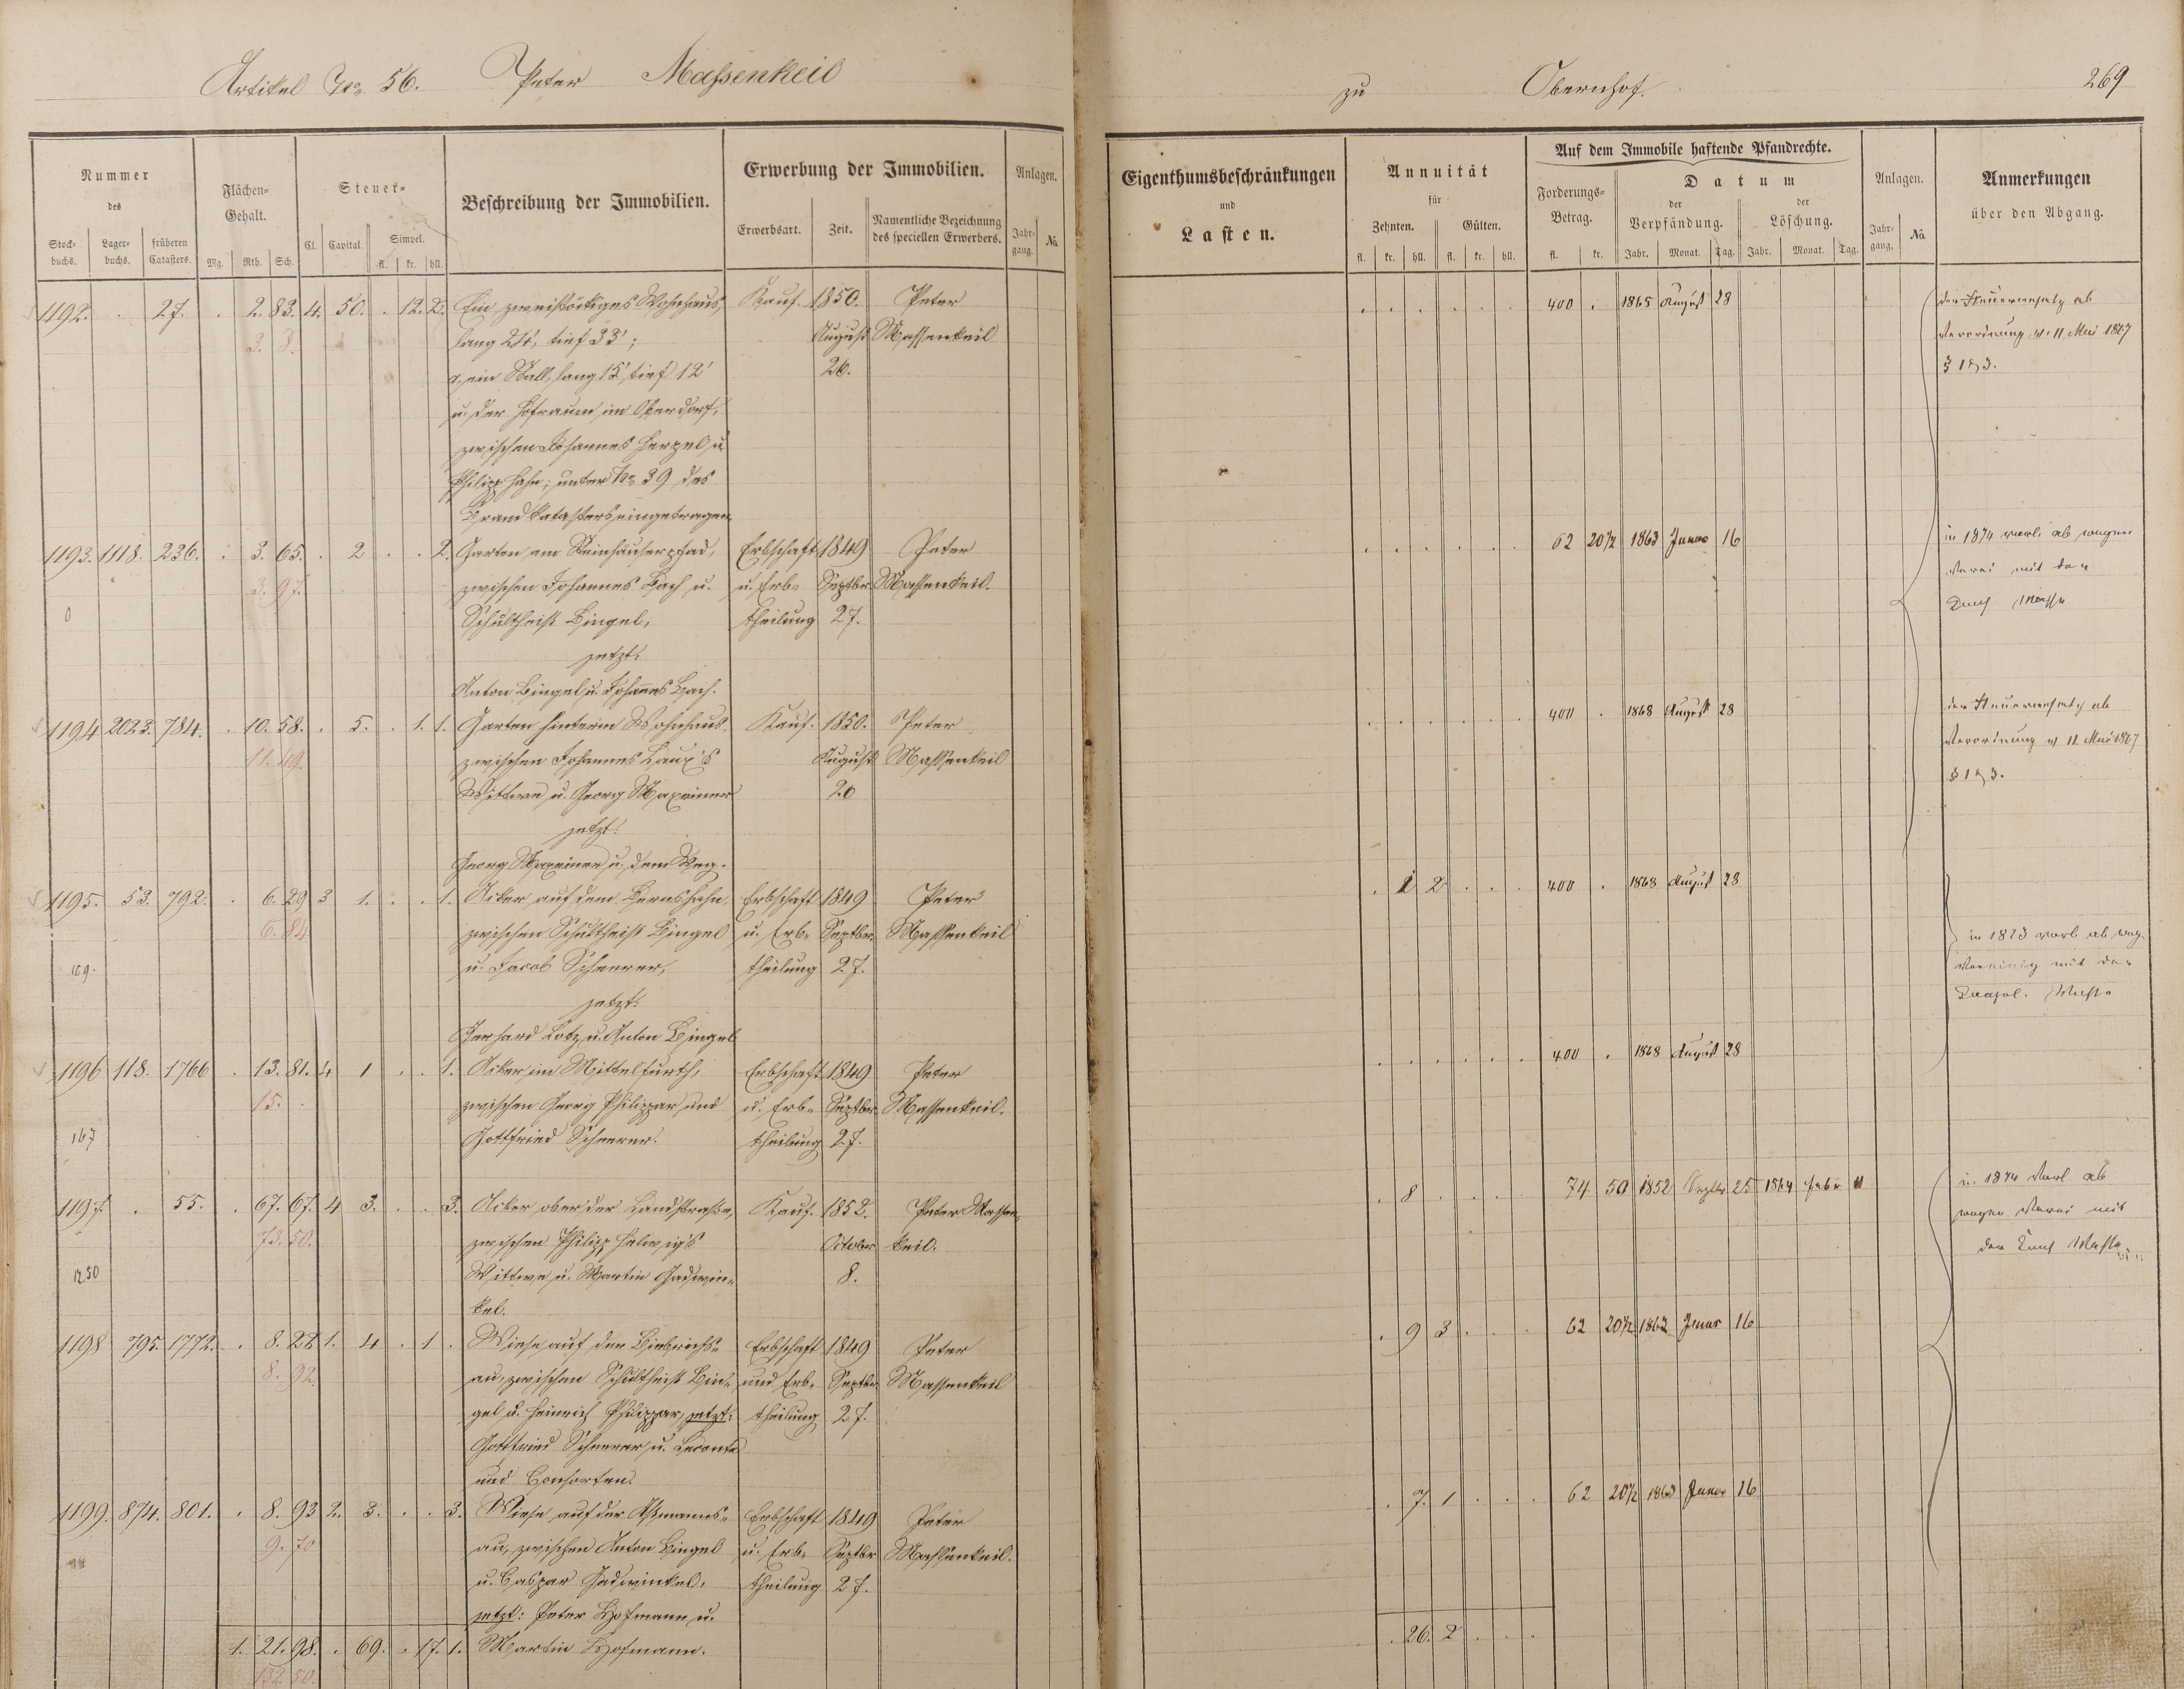 Artikel No. 56. Peter Maßenkeil
zu Obernhof. 269
Nummer
des
Stock-
buchs.
Lager-
buchs.
früheren
Catasters.
Flächen-
Gehalt.
Mg. Rth. Sch.
Steuer-
Cl. Capital. Simpel.
fl. kr. hll.
Beschreibung der Immobilien.
Erwerbung der Immobilien.
Erwerbsart. Zeit. Namentliche Bezeichnung
des speciellen Erwerbers.
Anlagen.
Jahr-
gang. No.
Eigenthumsbeschränkungen
und
Lasten.
Annuität
für
Zehnten. Gülten.
fl. kr. hll. fl. kr. hll.
Auf dem Immobile haftende Pfandrechte.
Forderungs-
Betrag.
fl. kr.
Datum
der
Verpfändung.
der
Löschung.
Jahr. Monat. Tag. Jahr. Monat. Tag.
Anlagen.
Jahr-
gang. No.
Anmerkungen
über den Abgang.
1192. . 27. . 2. 83. 4. 50. . 12. 2. Ein zweistöckiges Wohnhaus, Kauf. 1850. Peter
3. 8. lang 24', tief 33'; August Massenkeil
a, ein Stall, lang 15' tief 12' 26.
u. der Hofraum im Oberdorf,
zwischen Johannes Herzel u.
Philipp Hahn; unter No. 39 des
Brandkatasters eingetragen,
400 . 1865 August 28
Verordnung v. 11. Mai 1867
§ 1 3.
1193. 1118. 236. . 3. 65. . 2 . . 2. Garten am Steinhäuserpfad, Erbschaft 1849 Peter
3. 97. zwischen Johannes Bach u. u. Erb- Septbr. Massenkeil.
0 Schultheiß Bingel, theilung 27.
jetzt:
Anton Bingel u. Johannes Bach.
62 20½ 1863 Januar 16
in 1874 ab wegen
mit der
Masse
1194 2023. 784. . 10. 58. . 5. . 1. 1. Garten hinterm Wohnhaus, Kauf. 1850. Peter
11. 49. zwischen Johannes Laux's August Massenkeil
Wittwe u. Georg Maxeiner 26
jetzt:
Georg Maxeiner u. dem Weg.
400 . 1868 August 28
Verordnung v. 11. Mai 1867
§ 1 3.
1195. 53. 792. . 6. 29 3 1. . . 1. Acker auf dem Bernshahn, Erbschaft 1849 Peter
6. 84 zwischen Schultheiß Bingel u. Erb- Septbr. Massenkeil
169. u. Jacob Scheerer, theilung 27.
jetzt:
Gerhard Lotz u. Anton Bingel
. 1 2 . . . 400 . 1868 August 28
in 1873 ab
mit der
1196 118. 1766 . 13. 81. 4 1 . . 1. Acker im Mittelfurth, Erbschaft 1849 Peter
15. zwischen Georg Philippar und u. Erb- Septbr. Massenkeil.
167 Gottfried Scheerer. theilung 27.
400 . 1868 August 28
1197. . 55. . 67. 67. 4 3. . . 3. Acker ober der Landstraße, Kauf. 1852. Peter Massen-
73. 50. zwischen Philipp Helwig's October keil.
1250 Wittwe u. Martin Gadwin- 8.
kel.
. 8 . . . . 74 50 1852 Septbr 25 1864 Febr 11
in 1874 ab
wegen mit
der Masse
1198 795. 1772. . 8. 22 1. 4 . 1 . Wiese auf der Biebrichs- Erbschaft 1849 Peter
8. 92. au, zwischen Schultheiß Bin- und Erb- Septbr Massenkeil
gel u. Heinrich Philippar, jetzt: theilung 27.
Gottfried Scheerer u. Leconte
und Consorten.
. 9 3 . . . 62 20½ 1863 Januar 16
1199. 874. 801. . 8. 93 2. 3. . . 3. Wiese auf der Aßmanns- Erbschaft 1849 Peter
9. 70 au, zwischen Anton Bingel u. Erb- Septbr Massenkeil.
u. Caspar Gadwinkel, theilung 27.
jetzt: Peter Hofmann u.
Martin Hofmann.
. 7. 1 . . . 62 20½ 1863 Januar 16
1. 21. 98. . 69. . 17. 1.
132. 50.
. 26. 2 . . .